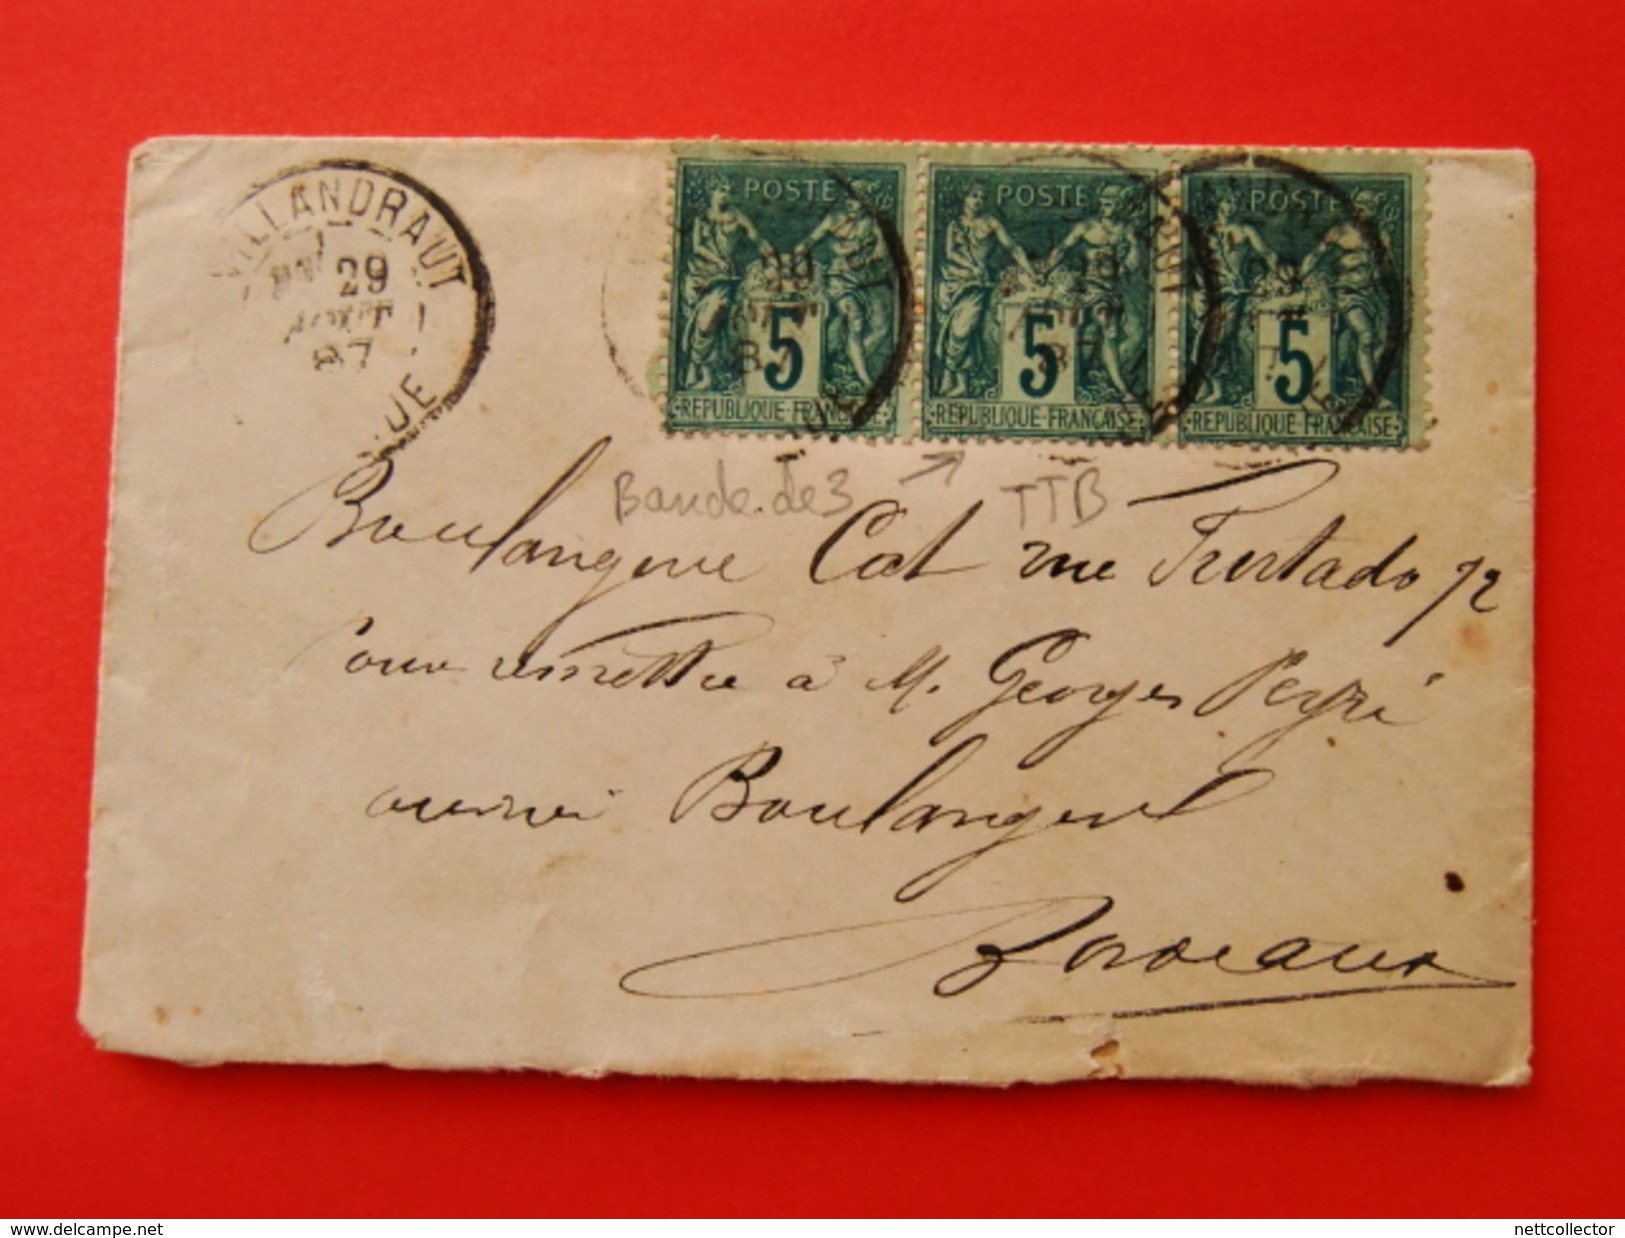 VILLANDRAUT
29
AOUT
87
POSTE POSTE
29 29 29
87
5 5 5
REPUBLIQUE FRANÇAISE REPUBLIQUE FRANÇAISE REPUBLIQUE FRANÇAISE
Bande de 3 TTB
Boulangerie Cat rue Furtado 72
Pour remettre à M. Georges Peyri
ouvrier Boulanger
Bordeaux
www.delcampe.net
nettcollector